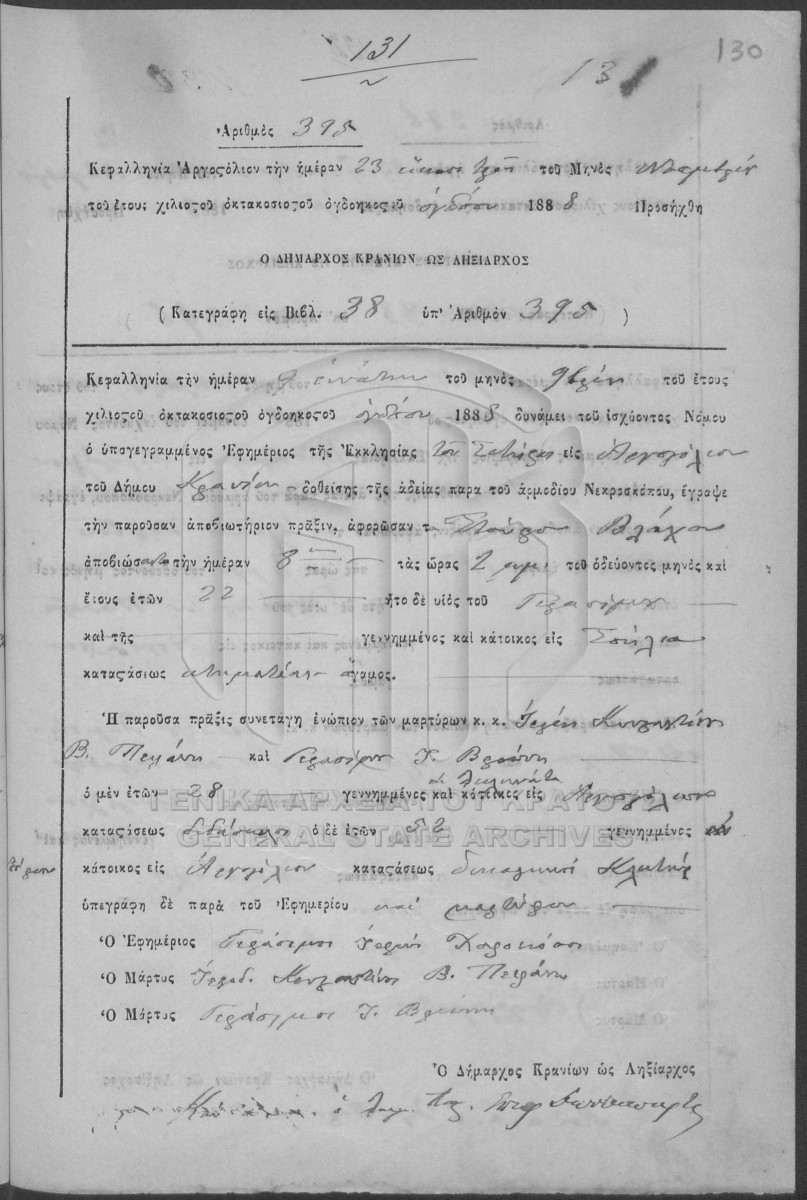 131
130
13
Ἀριθμὸς 395
Κεφαλληνία Ἀργοςόλιον τὴν ἡμέραν 23 εἴκοσι τρεῖς τοῦ Μηνὸς
τοῦ ἔτους χιλιοςοῦ ὀκτακοσιοςοῦ ὀγδοηκοςοῦ ὀγδόου 1888 Προσήχθη
Ὁ ΔΗΜΑΡΧΟΣ ΚΡΑΝΙΩΝ ΩΣ ΛΗΞΙΑΡΧΟΣ
( Κατεγράφη εἰς Βιβλ. 38 ὑπ' Ἀριθμὸν 395 )
Κεφαλληνία τὴν ἡμέραν 9 ἐννάτην τοῦ μηνὸς 9βρίου τοῦ ἔτους
χιλιοςοῦ ὀκτακοσιοςοῦ ὀγδοηκοςοῦ ὀγδόου 1888 δυνάμει τοῦ ἰσχύοντος Νόμου
ὁ ὑπογεγραμμένος Ἐφημέριος τῆς Ἐκκλησίας τοῦ Σωτῆρος εἰς Ἀργοςόλιον
τοῦ Δήμου Κρανίων δοθείσης τῆς ἀδείας παρα τοῦ ἁρμοδίου Νεκροσκόπου, ἔγραψε
τὴν παροῦσαν ἀποβιωτήριον πρᾶξιν, ἀφορῶσαν το Σταῦρον Βλάχον
ἀποβιώσαντα τὴν ἡμέραν 8 τὰς ὥρας 2 μμ τοῦ ὁδεύοντος μηνὸς καὶ
ἔτους ἐτῶν 22 ἦτο δὲ υἱὸς τοῦ Γερασίμου
καὶ τῆς γεννημμένος καὶ κάτοικος εἰς
καταςάσεως κτηματίας ἄγαμος.
Ἡ παροῦσα πρᾶξις συνετάγη ἐνώπιον τῶν μαρτύρων κ. κ. Ἱερέως Κωνσταντίνου
Β. καὶ Γερασίμου Ἰ.
ὁ μὲν ἐτῶν 28 γεννημμένος καὶ κάτοικος εἰς Ἀργοςόλιον
καταςάσεως διδάσκαλος ὁ δὲ ἐτῶν 52 γεννημμένος
κάτοικος εἰς Ἀργοςόλιον καταςάσεως δικαστικοῦ Κλητῆρ
ὑπεγράφη δὲ παρὰ τοῦ Ἐφημερίου καὶ μαρτύρων
Ὁ Ἐφημέριος Γεράσιμος Ἱερεὺς
Ὁ Μάρτυς Κωνσταντῖνος Β.
Ὁ Μάρτυς Γεράσιμος Ἰ.
Ὁ Δήμαρχος Κρανίων ὡς Ληξίαρχος
ΓΕΝΙΚΑ ΑΡΧΕΙΑ ΤΟΥ ΚΡΑΤΟΥΣ
GENERAL STATE ARCHIVES